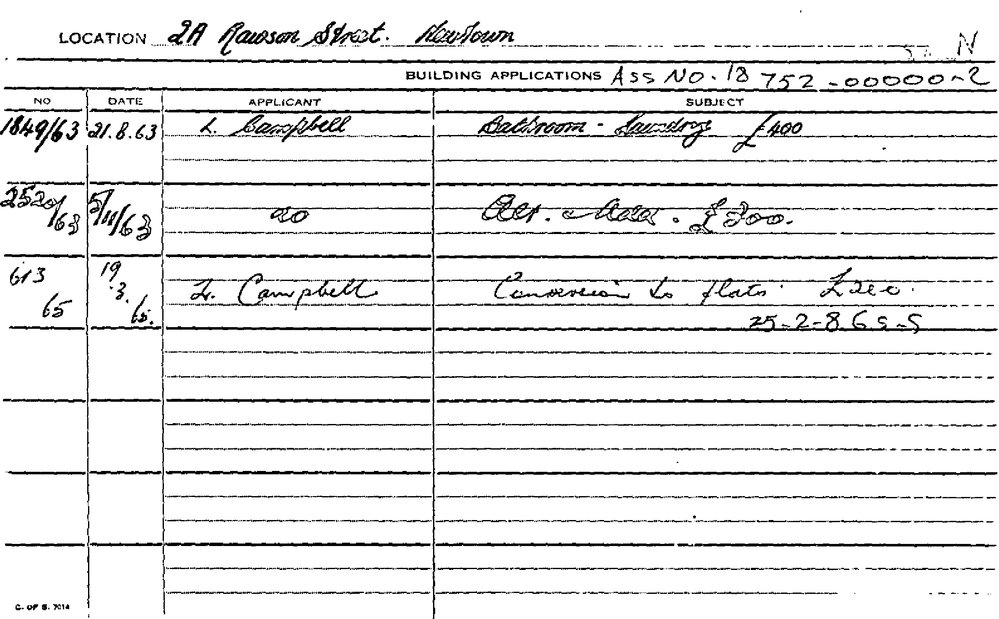 LOCATION 2A Rawson Street. Newtown
N
BUILDING APPLICATIONS ASS NO. 18 752-00000-2
NO DATE APPLICANT SUBJECT
1849/63 21.8.63 L. Campbell Bathroom - Laundry £400
2520/63 5/11/63 do Alt. & Add. £300.
613/65 19.3.65. L. Campbell Conversion to flats
25-2-8.65-5
C. OF S. 7014